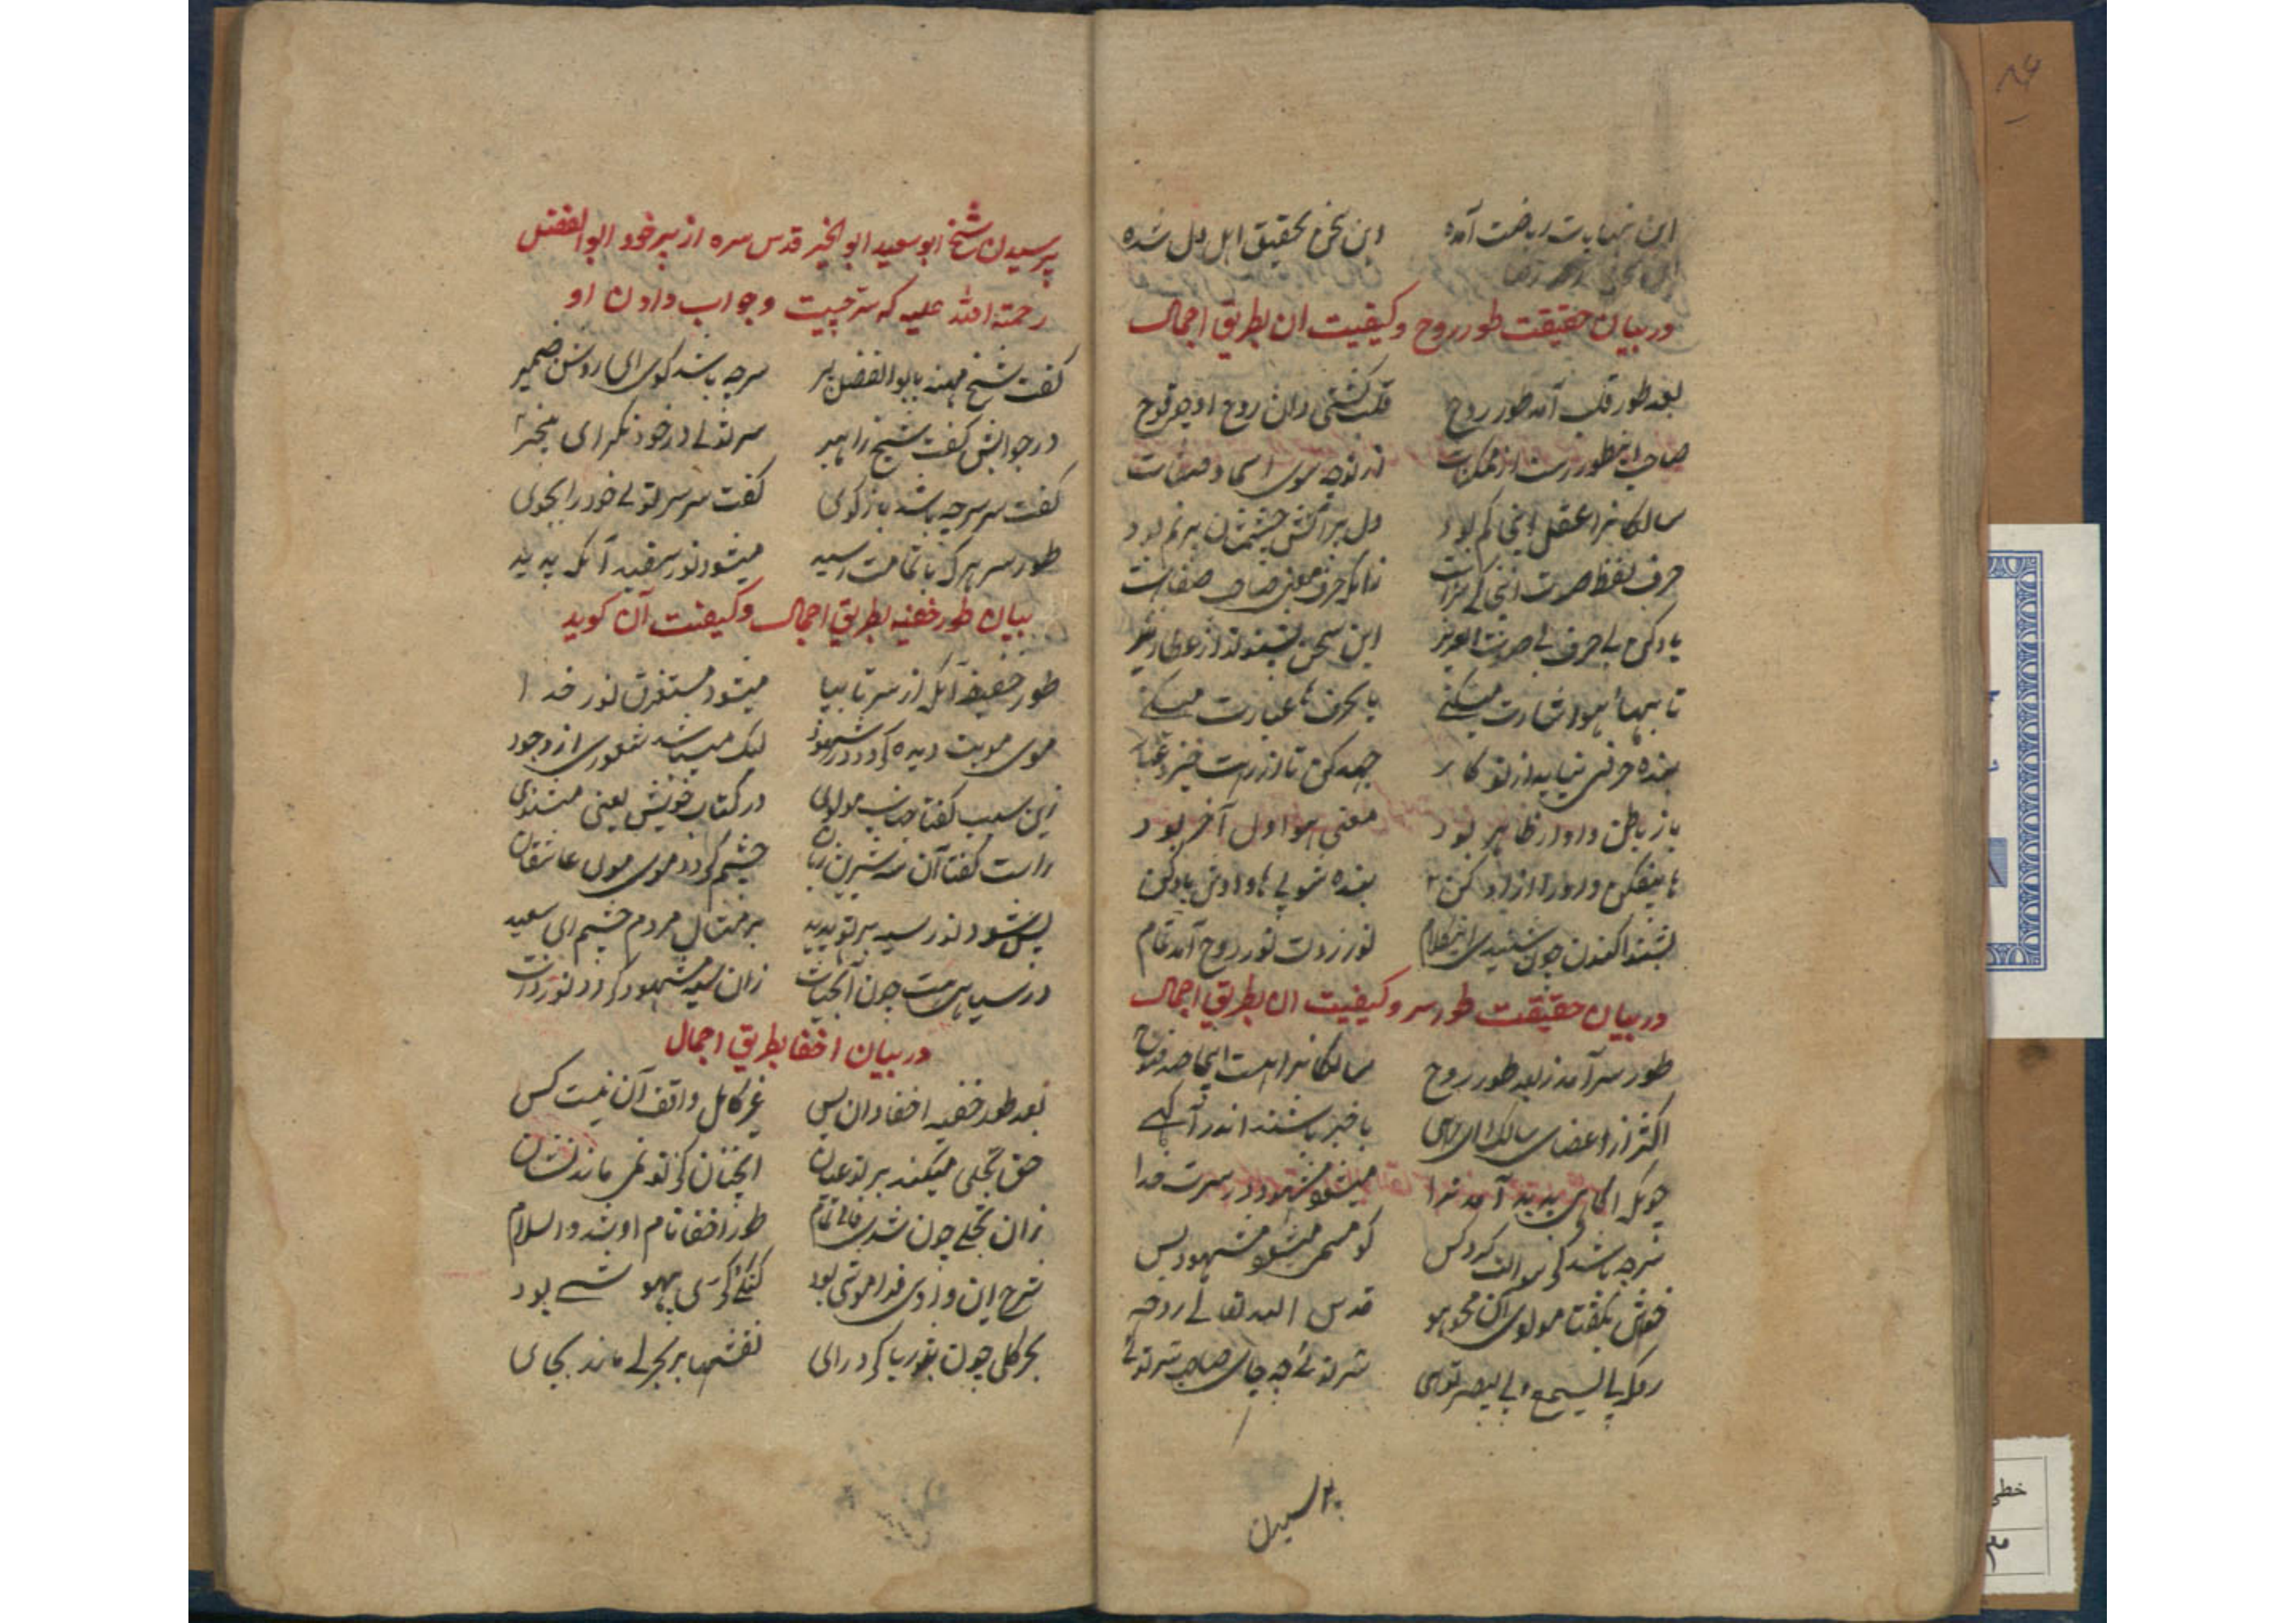 این نهایات ریاضت آمده این سخن تحقیق اهل دل شده
در بیان حقیقت طور روح و کیفیت آن بطریق اجمال
بعد طور قلب آمد طور روح قلب کشتی دان روح او چو نوح
صاحب اینطور رست از ممکنات در توجه سوی اسما و صفات
سالکانرا عقل اینجا کم بود دل پر آتش چشمشان پر نم بود
حرف لفظ صوت اینجا کی سزاست زانکه حرف معنی صاحب صفاست
یاد کن بی حرف بی صوت ای عزیز این سخن بشنو تو از عطار نیز
تا بهای هو اشارت میکنی با حرف ها عبارت میکنی
بنده حرفی نیاید از تو کار جهد کن تا از رهت خیزد غبار
باز باطن دا و او ظاهر بود معنی هو اول آخر بود
ها بیفکن واو را آزاد کن بنده شو بی ها و واوش یاد کن
بشنو اکنون چون شنیدی این کلام نور زردت نور روح آمد تمام
در بیان حقیقت طور سر و کیفیت آن بطریق اجمال
طور سر آمد ز بعد طور روح سالکانرا هست اینجا صد فتوح
اکثر از اعضای سالک ای بهی با خبر باشند اندر آگهی
چونکه آگاهی پدید آمد ترا میشود مشهود در سرت خدا
سر چه باشد کی سوالت کرد کس کو مسمی میشود مشهود بس
خوش بگفتا مولوی آن محو هو قدس الله تعالی روحه
رو که بی یسمع و بی یبصر توئی سر توئی چه جای صاحب سر توئی
پرسیدن
پرسیدن شیخ ابو سعید ابو الخیر قدس سره از پیر خود ابو الفضل
رحمته الله علیه که سر چیست و جواب دادن او
گفت شیخ مهنه با بو الفضل پیر سر چه باشد گوی ای روشن ضمیر
در جوابش گفت شیخ راهبر سر توئی در خود نگر ای بیخبر
گفت سر سر چه باشد باز گوی گفت سر سر توئی خود را بجوی
طور سر هر که با تمامت رسید میشود نور سفید آنکه پدید
بیان طور خفیه بطریق اجمال و کیفیت آن گوید
طور خفیه آنکه از سر تا بپا میشود مستغرق نور خدا
موی مویت دیده گردد در شهود لیک میباشد شعوری از وجود
زین سبب گفتا جناب مولوی در کتاب خویش یعنی مثنوی
راست گفتا آن شه شیرین زبان چشم گردد موی موی عاشقان
پس شود نور سیه بر تو پدید بر مثال مردم چشم ای سعید
در سیاهی هست چون آبحیات زان سیه مشهود گردد نور ذات
در بیان اخفا بطریق اجمال
بعد طور خفیه اخفا دان پس غیر کامل واقف آن نیست کس
حق تجلی میکند بر تو عیان آنچنان کز تو نمی ماند نشان
زان تجلی چون شدی فانی تمام طور اخفا نام او شد والسلام
شرح این وادی فراموشی بود گنگی و کری بیهوشی بود
بحر کلی چون بغور با در آی نقشها بر بحر کی ماند بجای
خطی